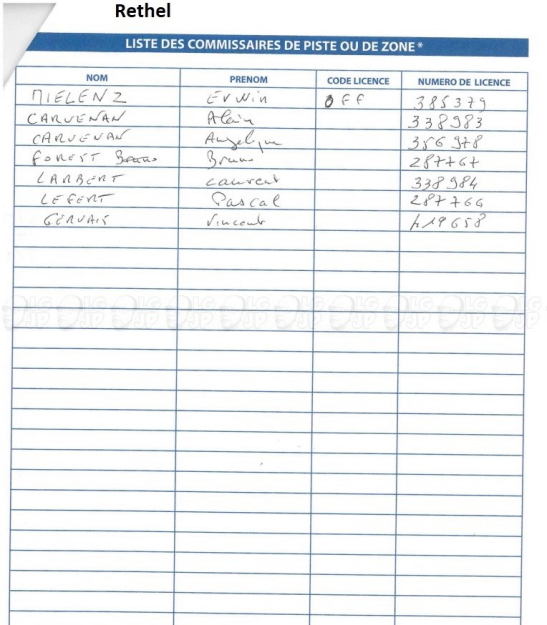 Rethel
LISTE DES COMMISSAIRES DE PISTE OU DE ZONE*
NOM PRENOM CODE LICENCE NUMERO DE LICENCE
MIELENZ Erwin OFF 385379
CARVENAN Alain 338983
CARVENAN Angelique 356978
FOREST Bruno 287767
LARBERT Laurent 338984
LEFERT Pascal 287766
GERVAIS Vincent 419658